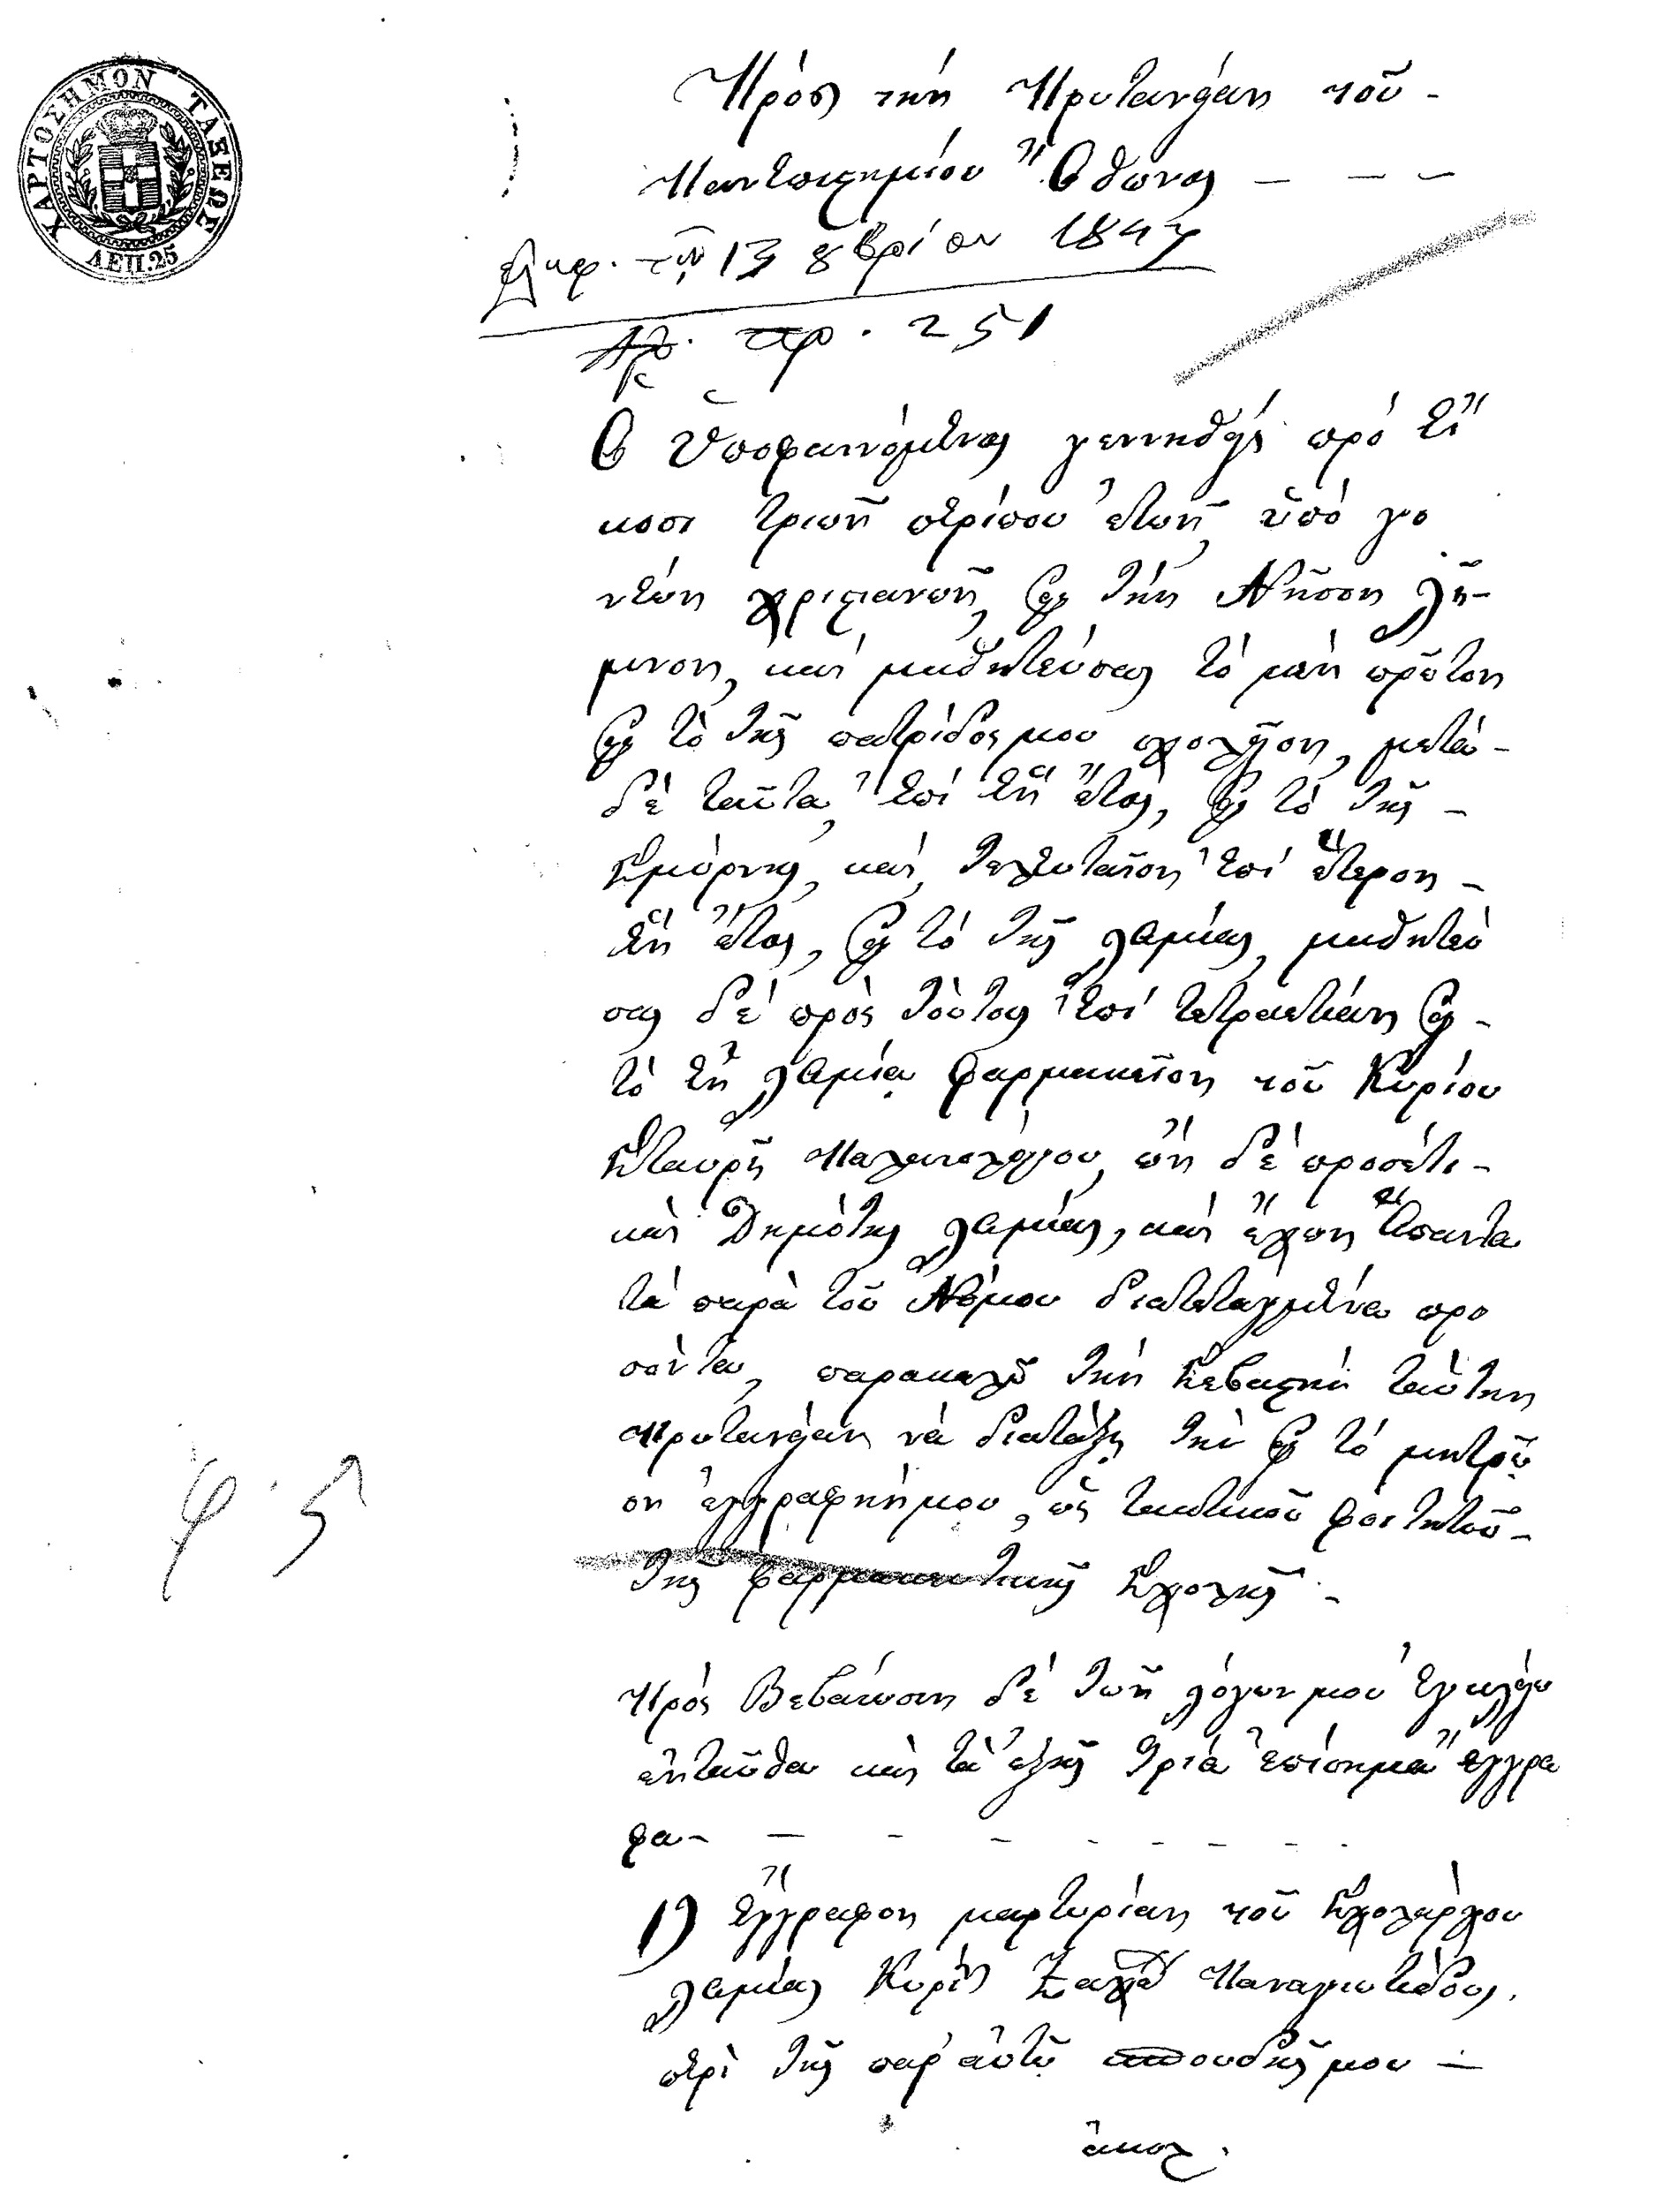 ΧΑΡΤΟΣΗΜΟΝ ΤΑΞΕΩΣ
ΛΕΠ.25
Πρὸς τὴν Πρυτανείαν τοῦ -
Πανεπιστημίου Ὄθωνος - - -
ἐλήφ. τῇ 13 8βρίου 1847
Ἀρ. πρ. 251
Ὁ Ὑποφαινόμενος γεννηθεὶς πρὸ εἴ
κοσι τριῶν περίπου ἐτῶν, ὑπὸ γο
νέων χριστιανῶν, εἰς τὴν Νῆσον Λῆ-
μνον, καὶ μαθητεύσας τὸ μὲν πρῶτον
εἰς τὸ τῆς πατρίδος μου σχολεῖον, μετὰ -
δὲ ταῦτα, ἐπὶ ἓν ἔτος, εἰς τὸ τῆς -
Σμύρνης, καὶ, τελευταῖον ἐπὶ ἕτερον -
ἓν ἔτος, εἰς τὸ τῆς Λαμίας, μαθητεύ
σας δὲ πρὸς τούτοις ἐπὶ τετραετίαν εἰς -
τὸ ἐν Λαμίᾳ Φαρμακεῖον τοῦ Κυρίου
Σταυρῆ Παλαιολόγου, ὢν δὲ προσέτι -
καὶ Δημότης Λαμίας, καὶ ἔχων ἅπαντα
τὰ παρὰ τοῦ Νόμου διατεταγμένα προ
σόντα, παρακαλῶ τὴν Σεβαστὴν ταύτην
Πρυτανείαν νὰ διατάξῃ τὴν εἰς τὸ μητρῷ
ον ἐγγραφήν μου, ὡς τακτικοῦ φοιτητοῦ -
τῆς φαρμακευτικῆς Σχολῆς. -
φ. 5
Πρὸς Βεβαίωσιν δὲ τῶν λόγων μου ἐγκλείω
ἐνταῦθα καὶ τὰ ἑξῆς τρία ἐπίσημα ἔγγρα
φα - - - - - - - -
1) Ἔγγραφον μαρτυρίαν τοῦ Σχολάρχου
Λαμίας Κυρίου Παναγιωτίδους,
περὶ τῆς παρ' αὐτῷ σπουδῆς μου -
ἀκολ.